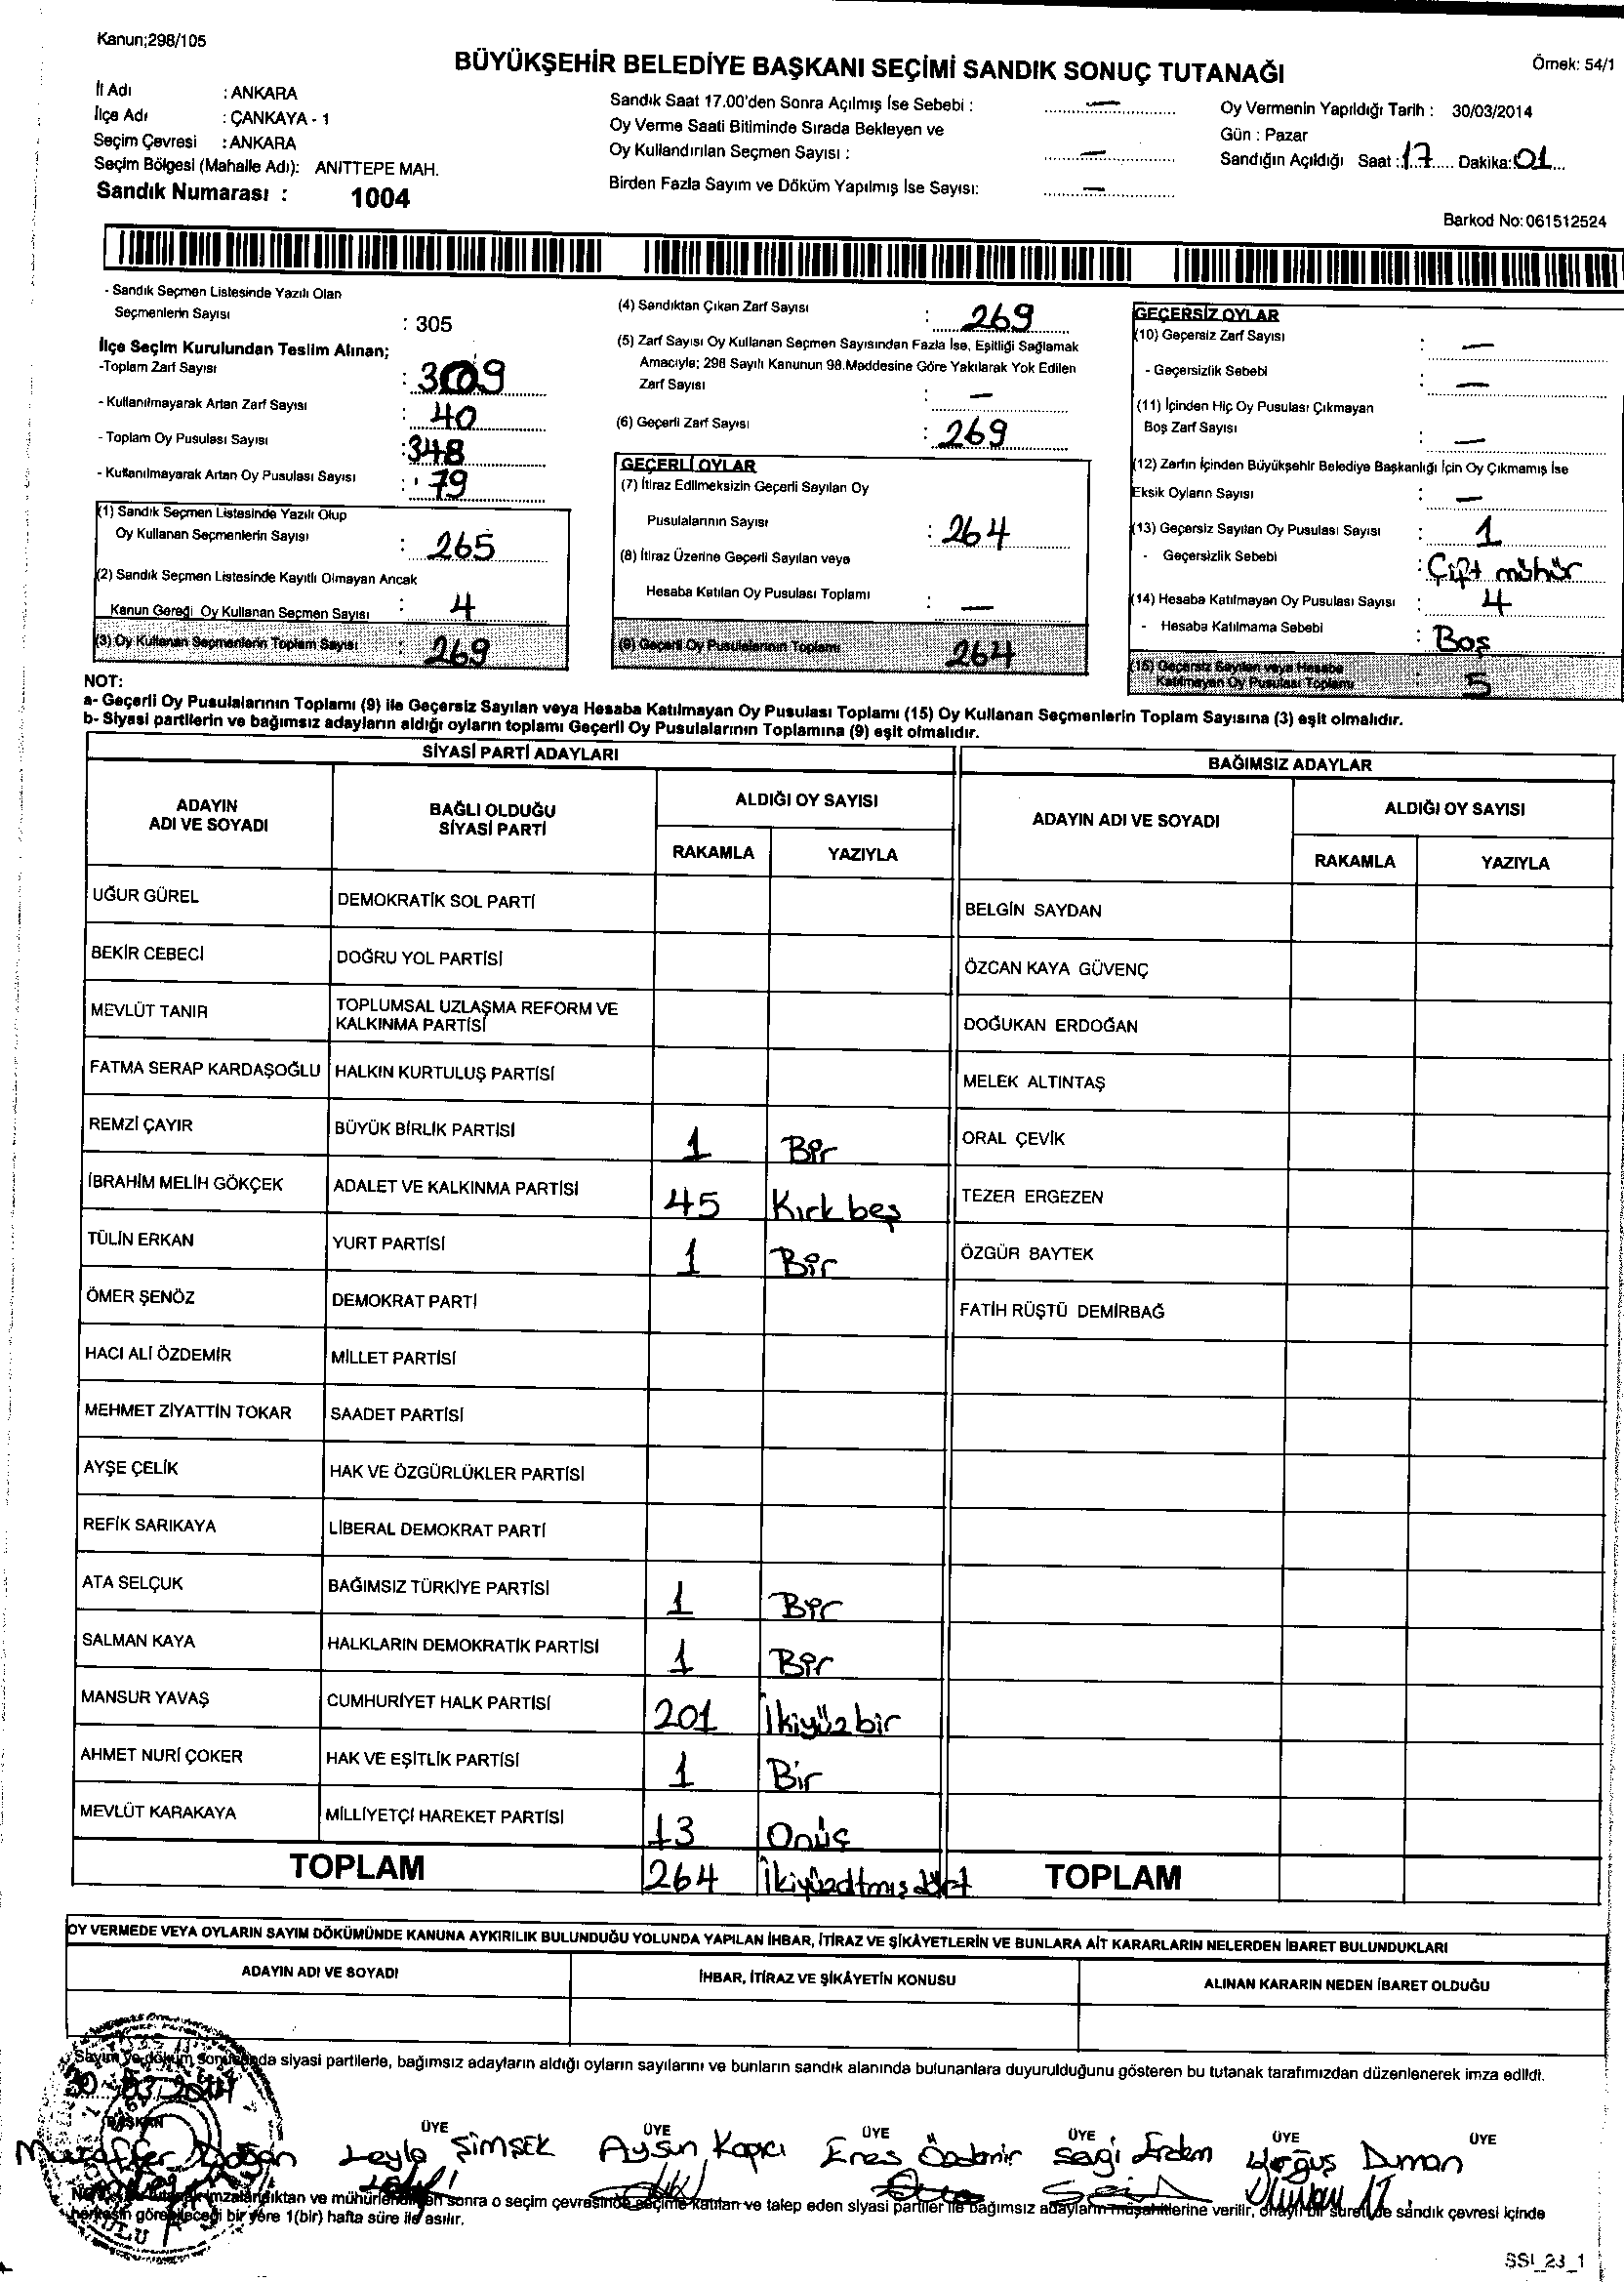 Kanun;298/105
Örnek: 54/1
BÜYÜKŞEHİR BELEDİYE BAŞKANI SEÇİMİ SANDIK SONUÇ TUTANAĞI
İl Adı : ANKARA
İlçe Adı : ÇANKAYA - 1
Seçim Çevresi : ANKARA
Seçim Bölgesi (Mahalle Adı): ANITTEPE MAH.
Sandık Numarası : 1004
Sandık Saat 17.00'den Sonra Açılmış İse Sebebi : —
Oy Verme Saati Bitiminde Sırada Bekleyen ve
Oy Kullandırılan Seçmen Sayısı : —
Birden Fazla Sayım ve Döküm Yapılmış İse Sayısı: —
Oy Vermenin Yapıldığı Tarih : 30/03/2014
Gün : Pazar
Sandığın Açıldığı Saat : 17 Dakika: 01
Barkod No: 061512524
- Sandık Seçmen Listesinde Yazılı Olan
Seçmenlerin Sayısı : 305
İlçe Seçim Kurulundan Teslim Alınan;
-Toplam Zarf Sayısı : 309
- Kullanılmayarak Artan Zarf Sayısı : 40
- Toplam Oy Pusulası Sayısı : 348
- Kullanılmayarak Artan Oy Pusulası Sayısı : 79
(1) Sandık Seçmen Listesinde Yazılı Olup
Oy Kullanan Seçmenlerin Sayısı : 265
(2) Sandık Seçmen Listesinde Kayıtlı Olmayan Ancak
Kanun Gereği Oy Kullanan Seçmen Sayısı : 4
(3) Oy Kullanan Seçmenlerin Toplam Sayısı : 269
(4) Sandıktan Çıkan Zarf Sayısı : 269
(5) Zarf Sayısı Oy Kullanan Seçmen Sayısından Fazla İse, Eşitliği Sağlamak
Amacıyla; 298 Sayılı Kanunun 98.Maddesine Göre Yakılarak Yok Edilen
Zarf Sayısı : —
(6) Geçerli Zarf Sayısı : 269
GEÇERLİ OYLAR
(7) İtiraz Edilmeksizin Geçerli Sayılan Oy
Pusulalarının Sayısı : 264
(8) İtiraz Üzerine Geçerli Sayılan veya
Hesaba Katılan Oy Pusulası Toplamı : —
(9) Geçerli Oy Pusulalarının Toplamı 264
GEÇERSİZ OYLAR
(10) Geçersiz Zarf Sayısı : —
- Geçersizlik Sebebi : —
(11) İçinden Hiç Oy Pusulası Çıkmayan
Boş Zarf Sayısı : —
(12) Zarfın İçinden Büyükşehir Belediye Başkanlığı İçin Oy Çıkmamış İse
Eksik Oyların Sayısı : —
(13) Geçersiz Sayılan Oy Pusulası Sayısı : 1
- Geçersizlik Sebebi : Çift mühür
(14) Hesaba Katılmayan Oy Pusulası Sayısı : 4
- Hesaba Katılmama Sebebi : Boş
(15) Geçersiz Sayılan veya Hesaba
Katılmayan Oy Pusulası Toplamı : 5
NOT:
a- Geçerli Oy Pusulalarının Toplamı (9) ile Geçersiz Sayılan veya Hesaba Katılmayan Oy Pusulası Toplamı (15) Oy Kullanan Seçmenlerin Toplam Sayısına (3) eşit olmalıdır.
b- Siyasi partilerin ve bağımsız adayların aldığı oyların toplamı Geçerli Oy Pusulalarının Toplamına (9) eşit olmalıdır.
SİYASİ PARTİ ADAYLARI
BAĞIMSIZ ADAYLAR
ADAYIN ADI VE SOYADI
BAĞLI OLDUĞU SİYASİ PARTİ
ALDIĞI OY SAYISI
RAKAMLA YAZIYLA
ADAYIN ADI VE SOYADI
ALDIĞI OY SAYISI
RAKAMLA YAZIYLA
UĞUR GÜREL DEMOKRATİK SOL PARTİ BELGİN SAYDAN
BEKİR CEBECİ DOĞRU YOL PARTİSİ ÖZCAN KAYA GÜVENÇ
MEVLÜT TANIR TOPLUMSAL UZLAŞMA REFORM VE KALKINMA PARTİSİ DOĞUKAN ERDOĞAN
FATMA SERAP KARDAŞOĞLU HALKIN KURTULUŞ PARTİSİ MELEK ALTINTAŞ
REMZİ ÇAYIR BÜYÜK BİRLİK PARTİSİ 1 Bir ORAL ÇEVİK
İBRAHİM MELİH GÖKÇEK ADALET VE KALKINMA PARTİSİ 45 Kırk beş TEZER ERGEZEN
TÜLİN ERKAN YURT PARTİSİ 1 Bir ÖZGÜR BAYTEK
ÖMER ŞENÖZ DEMOKRAT PARTİ FATİH RÜŞTÜ DEMİRBAĞ
HACI ALİ ÖZDEMİR MİLLET PARTİSİ
MEHMET ZİYATTİN TOKAR SAADET PARTİSİ
AYŞE ÇELİK HAK VE ÖZGÜRLÜKLER PARTİSİ
REFİK SARIKAYA LİBERAL DEMOKRAT PARTİ
ATA SELÇUK BAĞIMSIZ TÜRKİYE PARTİSİ 1 Bir
SALMAN KAYA HALKLARIN DEMOKRATİK PARTİSİ 1 Bir
MANSUR YAVAŞ CUMHURİYET HALK PARTİSİ 201 İkiyüzbir
AHMET NURİ ÇOKER HAK VE EŞİTLİK PARTİSİ 1 Bir
MEVLÜT KARAKAYA MİLLİYETÇİ HAREKET PARTİSİ 13 Onüç
TOPLAM 264 İkiyüzaltmışdört TOPLAM
OY VERMEDE VEYA OYLARIN SAYIM DÖKÜMÜNDE KANUNA AYKIRILIK BULUNDUĞU YOLUNDA YAPILAN İHBAR, İTİRAZ VE ŞİKÂYETLERİN VE BUNLARA AİT KARARLARIN NELERDEN İBARET BULUNDUKLARI
ADAYIN ADI VE SOYADI İHBAR, İTİRAZ VE ŞİKÂYETİN KONUSU ALINAN KARARIN NEDEN İBARET OLDUĞU
Sayım ve döküm sonucunda siyasi partilerle, bağımsız adayların aldığı oyların sayılarını ve bunların sandık alanında bulunanlara duyurulduğunu gösteren bu tutanak tarafımızdan düzenlenerek imza edildi.
30.03.2014
BAŞKAN ÜYE ÜYE ÜYE ÜYE ÜYE ÜYE
Muzaffer Doğan Leyla ŞİMŞEK Aysun Kapıcı Enes Özdemir Sezgi Erdem Duman
imzalandıktan ve mühürlendikten sonra o seçim çevresinde seçime katılan ve talep eden siyasi partiler ile bağımsız adayların müşahitlerine verilir, onaylı bir sureti de sandık çevresi içinde
herkesin görebileceği bir yere 1(bir) hafta süre ile asılır.
SSI_23_1